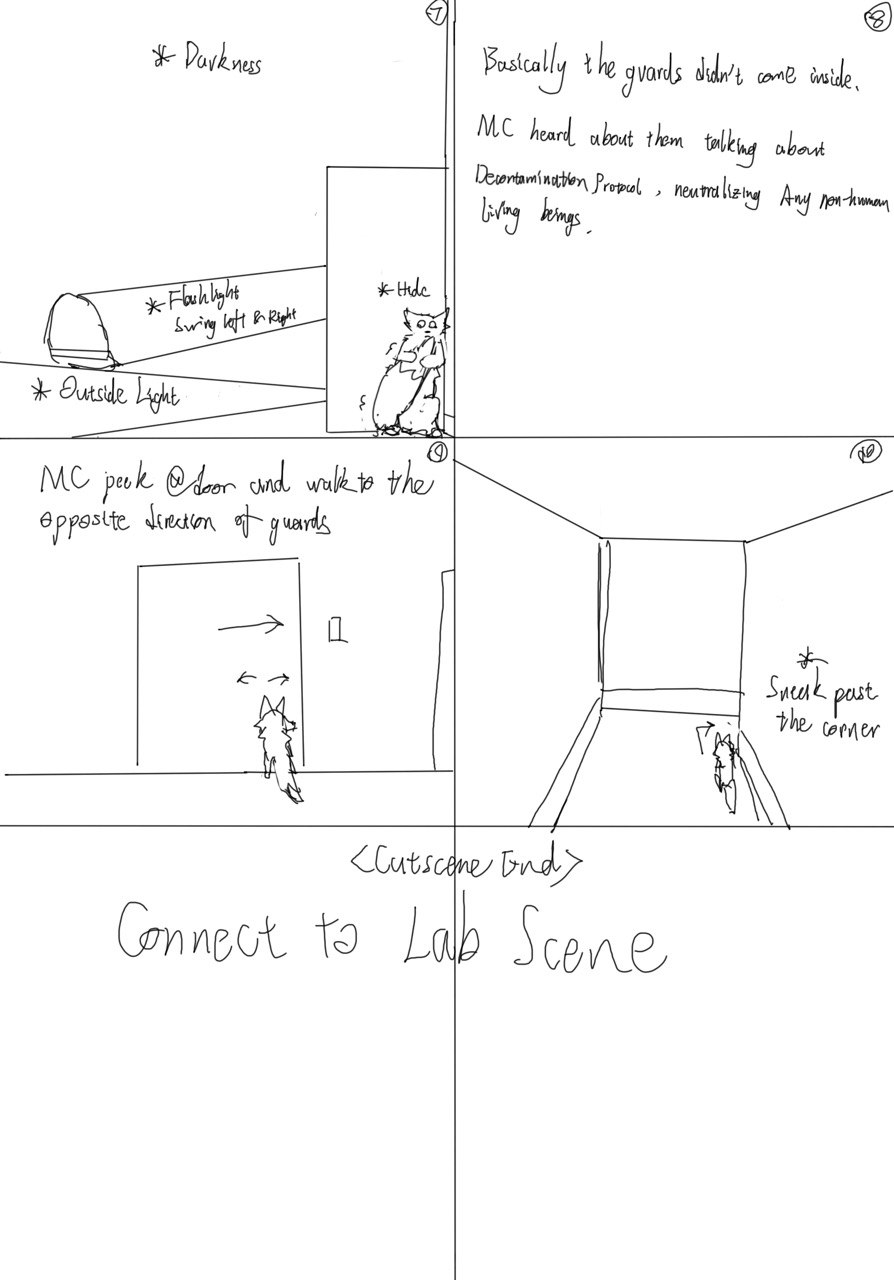 7
* Darkness
* Flashlight
Swing left & Right
* Hide
* Outside Light
8
Basically the guards didn't come inside.
MC heard about them talking about
Decontamination Protocol, neutralizing Any non-human
living beings.
9
MC peek @door and walk to the
opposite direction of guards
10
* Sneak past
the corner
<Cutscene End>
Connect to Lab Scene